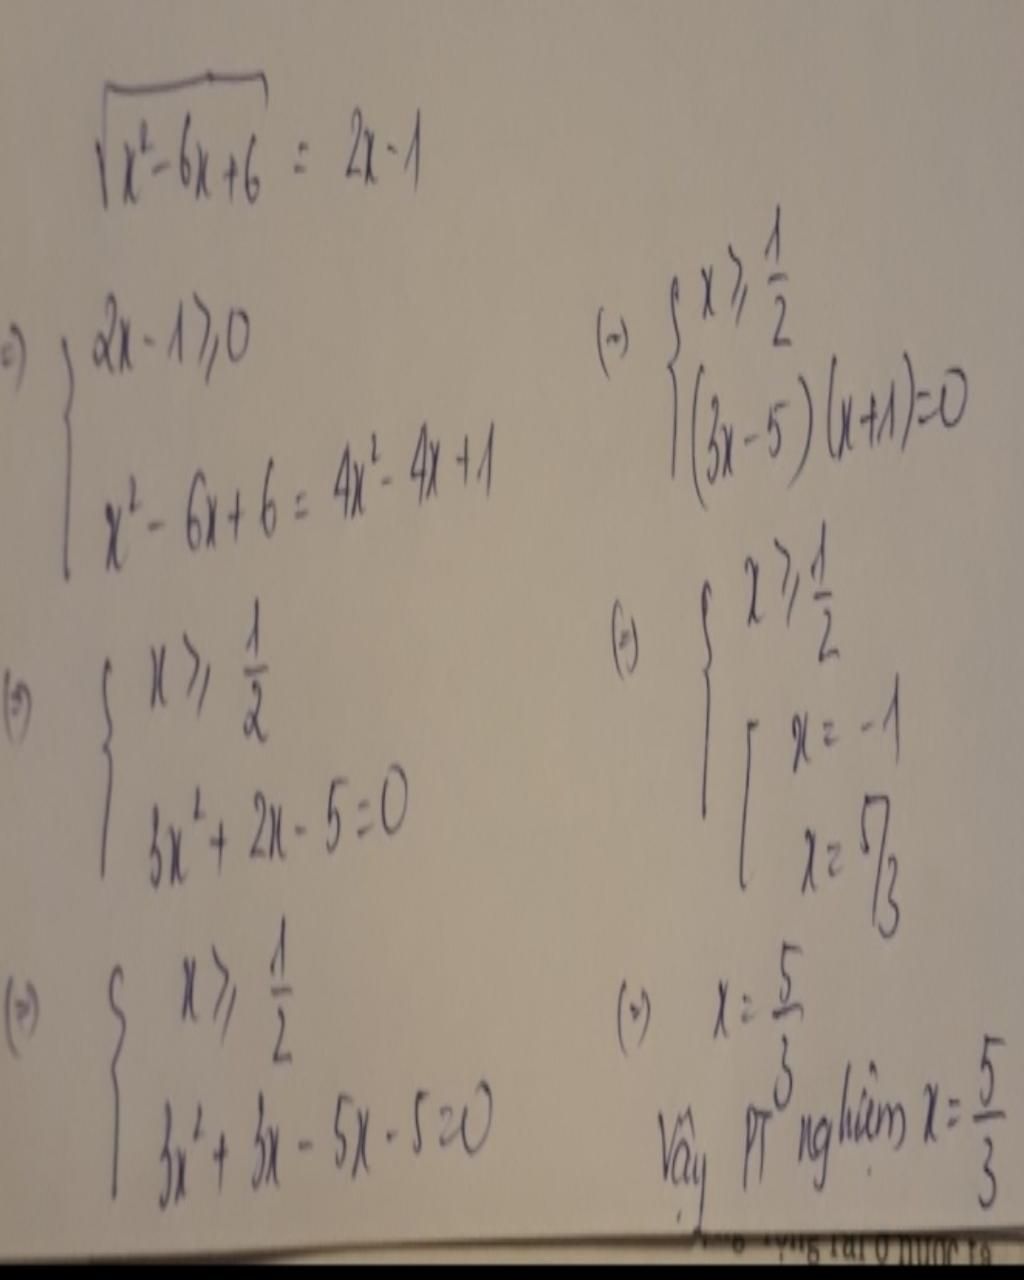 √(x² - 6x + 6) = 2x - 1
⇔ { 2x - 1 ⩾ 0
x² - 6x + 6 = 4x² - 4x + 1
(=) { x ⩾ 1/2
3x² + 2x - 5 = 0
(=) { x ⩾ 1/2
3x² + 3x - 5x - 5 = 0
(=) { x ⩾ 1/2
(3x - 5)(x + 1) = 0
(=) { x ⩾ 1/2
[ x = -1
x = 5/3
(=) x = 5/3
Vậy PT nghiệm x = 5/3